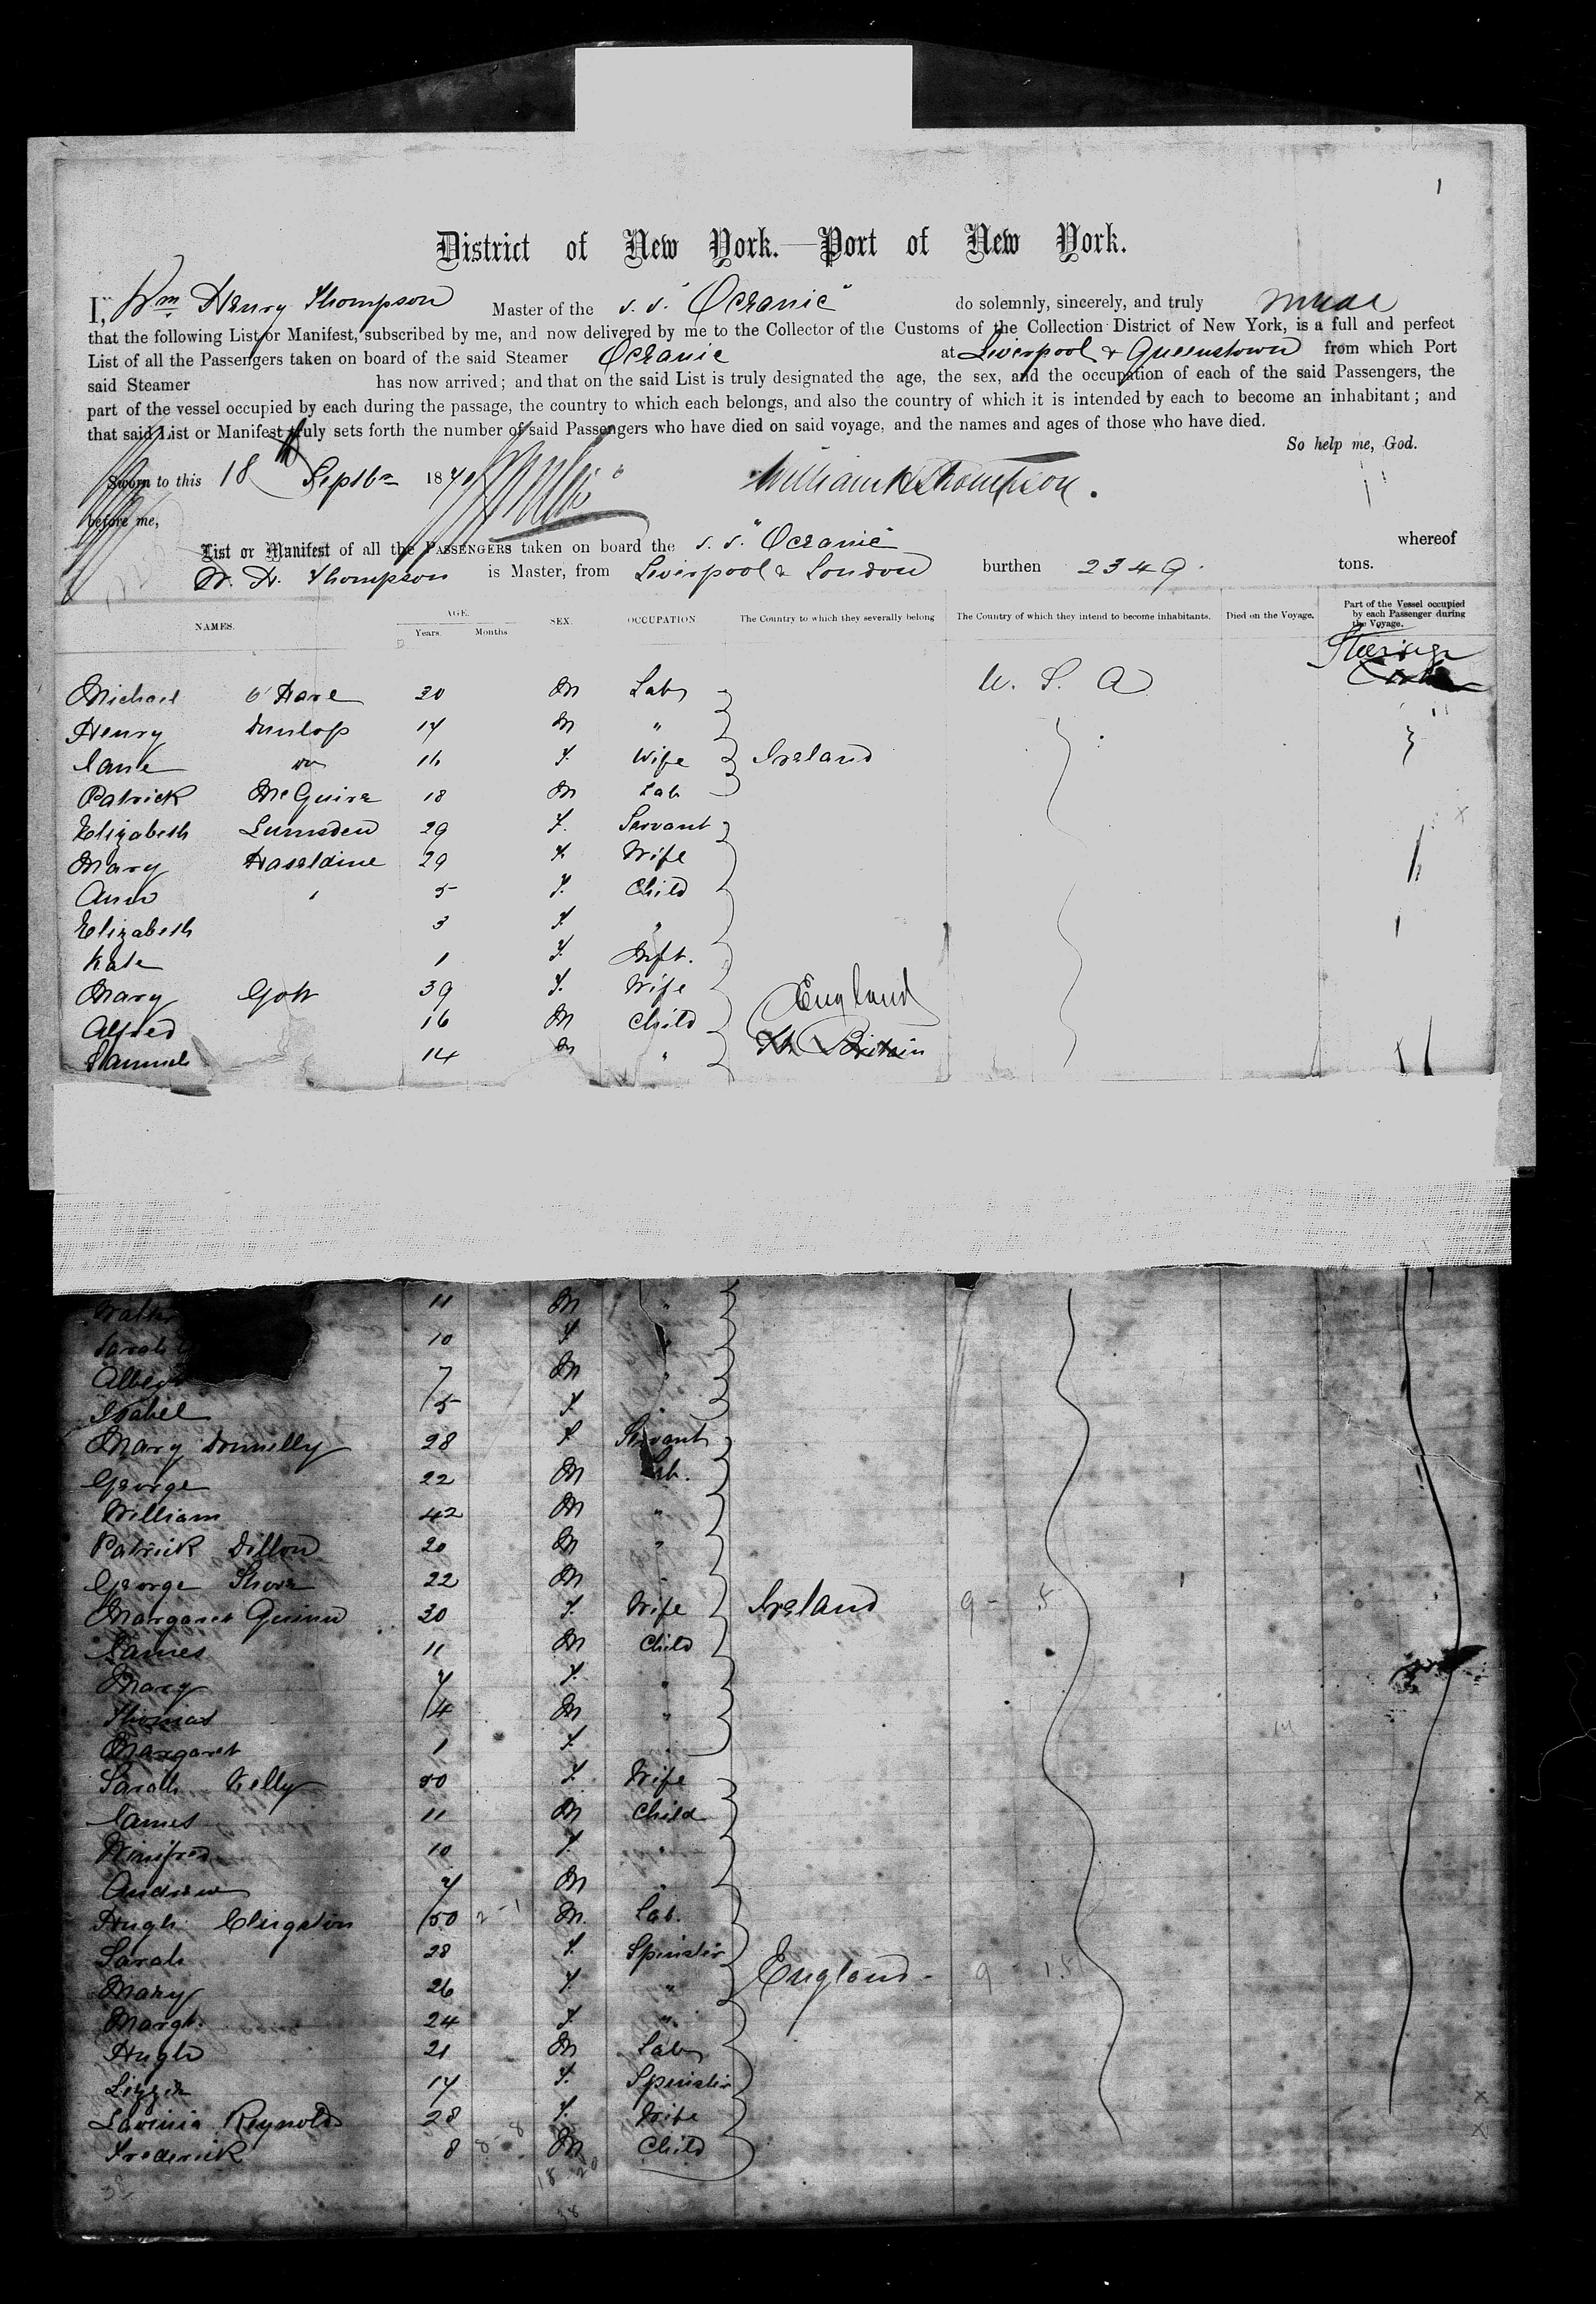 1
District of New York.—Port of New York.
I, Wm Henry Thompson Master of the s.s. "Oceanic" do solemnly, sincerely, and truly swear
that the following List or Manifest, subscribed by me, and now delivered by me to the Collector of the Customs of the Collection District of New York, is a full and perfect
List of all the Passengers taken on board of the said Steamer Oceanic at Liverpool & Queenstown from which Port
said Steamer has now arrived; and that on the said List is truly designated the age, the sex, and the occupation of each of the said Passengers, the
part of the vessel occupied by each during the passage, the country to which each belongs, and also the country of which it is intended by each to become an inhabitant; and
that said List or Manifest truly sets forth the number of said Passengers who have died on said voyage, and the names and ages of those who have died.
So help me, God.
Sworn to this 18 Septbr 187
William H Thompson.
before me,
List or Manifest of all the PASSENGERS taken on board the s.s. "Oceanic" whereof
W. H. Thompson is Master, from Liverpool & London burthen 2349. tons.
NAMES. AGE. Years. Months SEX. OCCUPATION The Country to which they severally belong The Country of which they intend to become inhabitants. Died on the Voyage. Part of the Vessel occupied by each Passenger during the Voyage.
Steerage
Michael O'Hare 20 M Lab U. S. A
Henry Dunlop 17 M "
Jane do 16 F. Wife Ireland
Patrick McGuire 18 M Lab
Elizabeth Lumsden 29 F. Servant
Mary Haseldine 29 F. Wife
Ann " 5 F. Child
Elizabeth 3 F. "
Kate 1 F. Inft.
Mary Gott 39 F. Wife England
Alfred 16 M Child
Samuel 14 M " Gt. Britain
Walter 11 M "
Sarah 10 F "
Albert 7 M "
Isabel 5 F "
Mary Donnelly 28 F Servant
George 22 M Lab.
William 42 M "
Patrick Dillon 20 M "
George Shore 22 M "
Margaret Quinn 30 F. Wife Ireland 9 - 5
James 11 M Child
Mary 7 F. "
Thomas 4 M "
Margaret 1 F. "
Sarah Kelly 50 F. Wife
James 11 M Child
Winifred 10 F. "
Andrew 7 M "
Hugh Clingston 50 2-1 M. Lab.
Sarah 28 F. Spinster England - 9 - 15
Mary 26 F. "
Margt. 24 F. "
Hugh 21 M Lab
Lizzie 17 F. Spinster
Lavinia Reynolds 28 F. Wife
Frederick 8 8-8 M Child
38 18 20
38